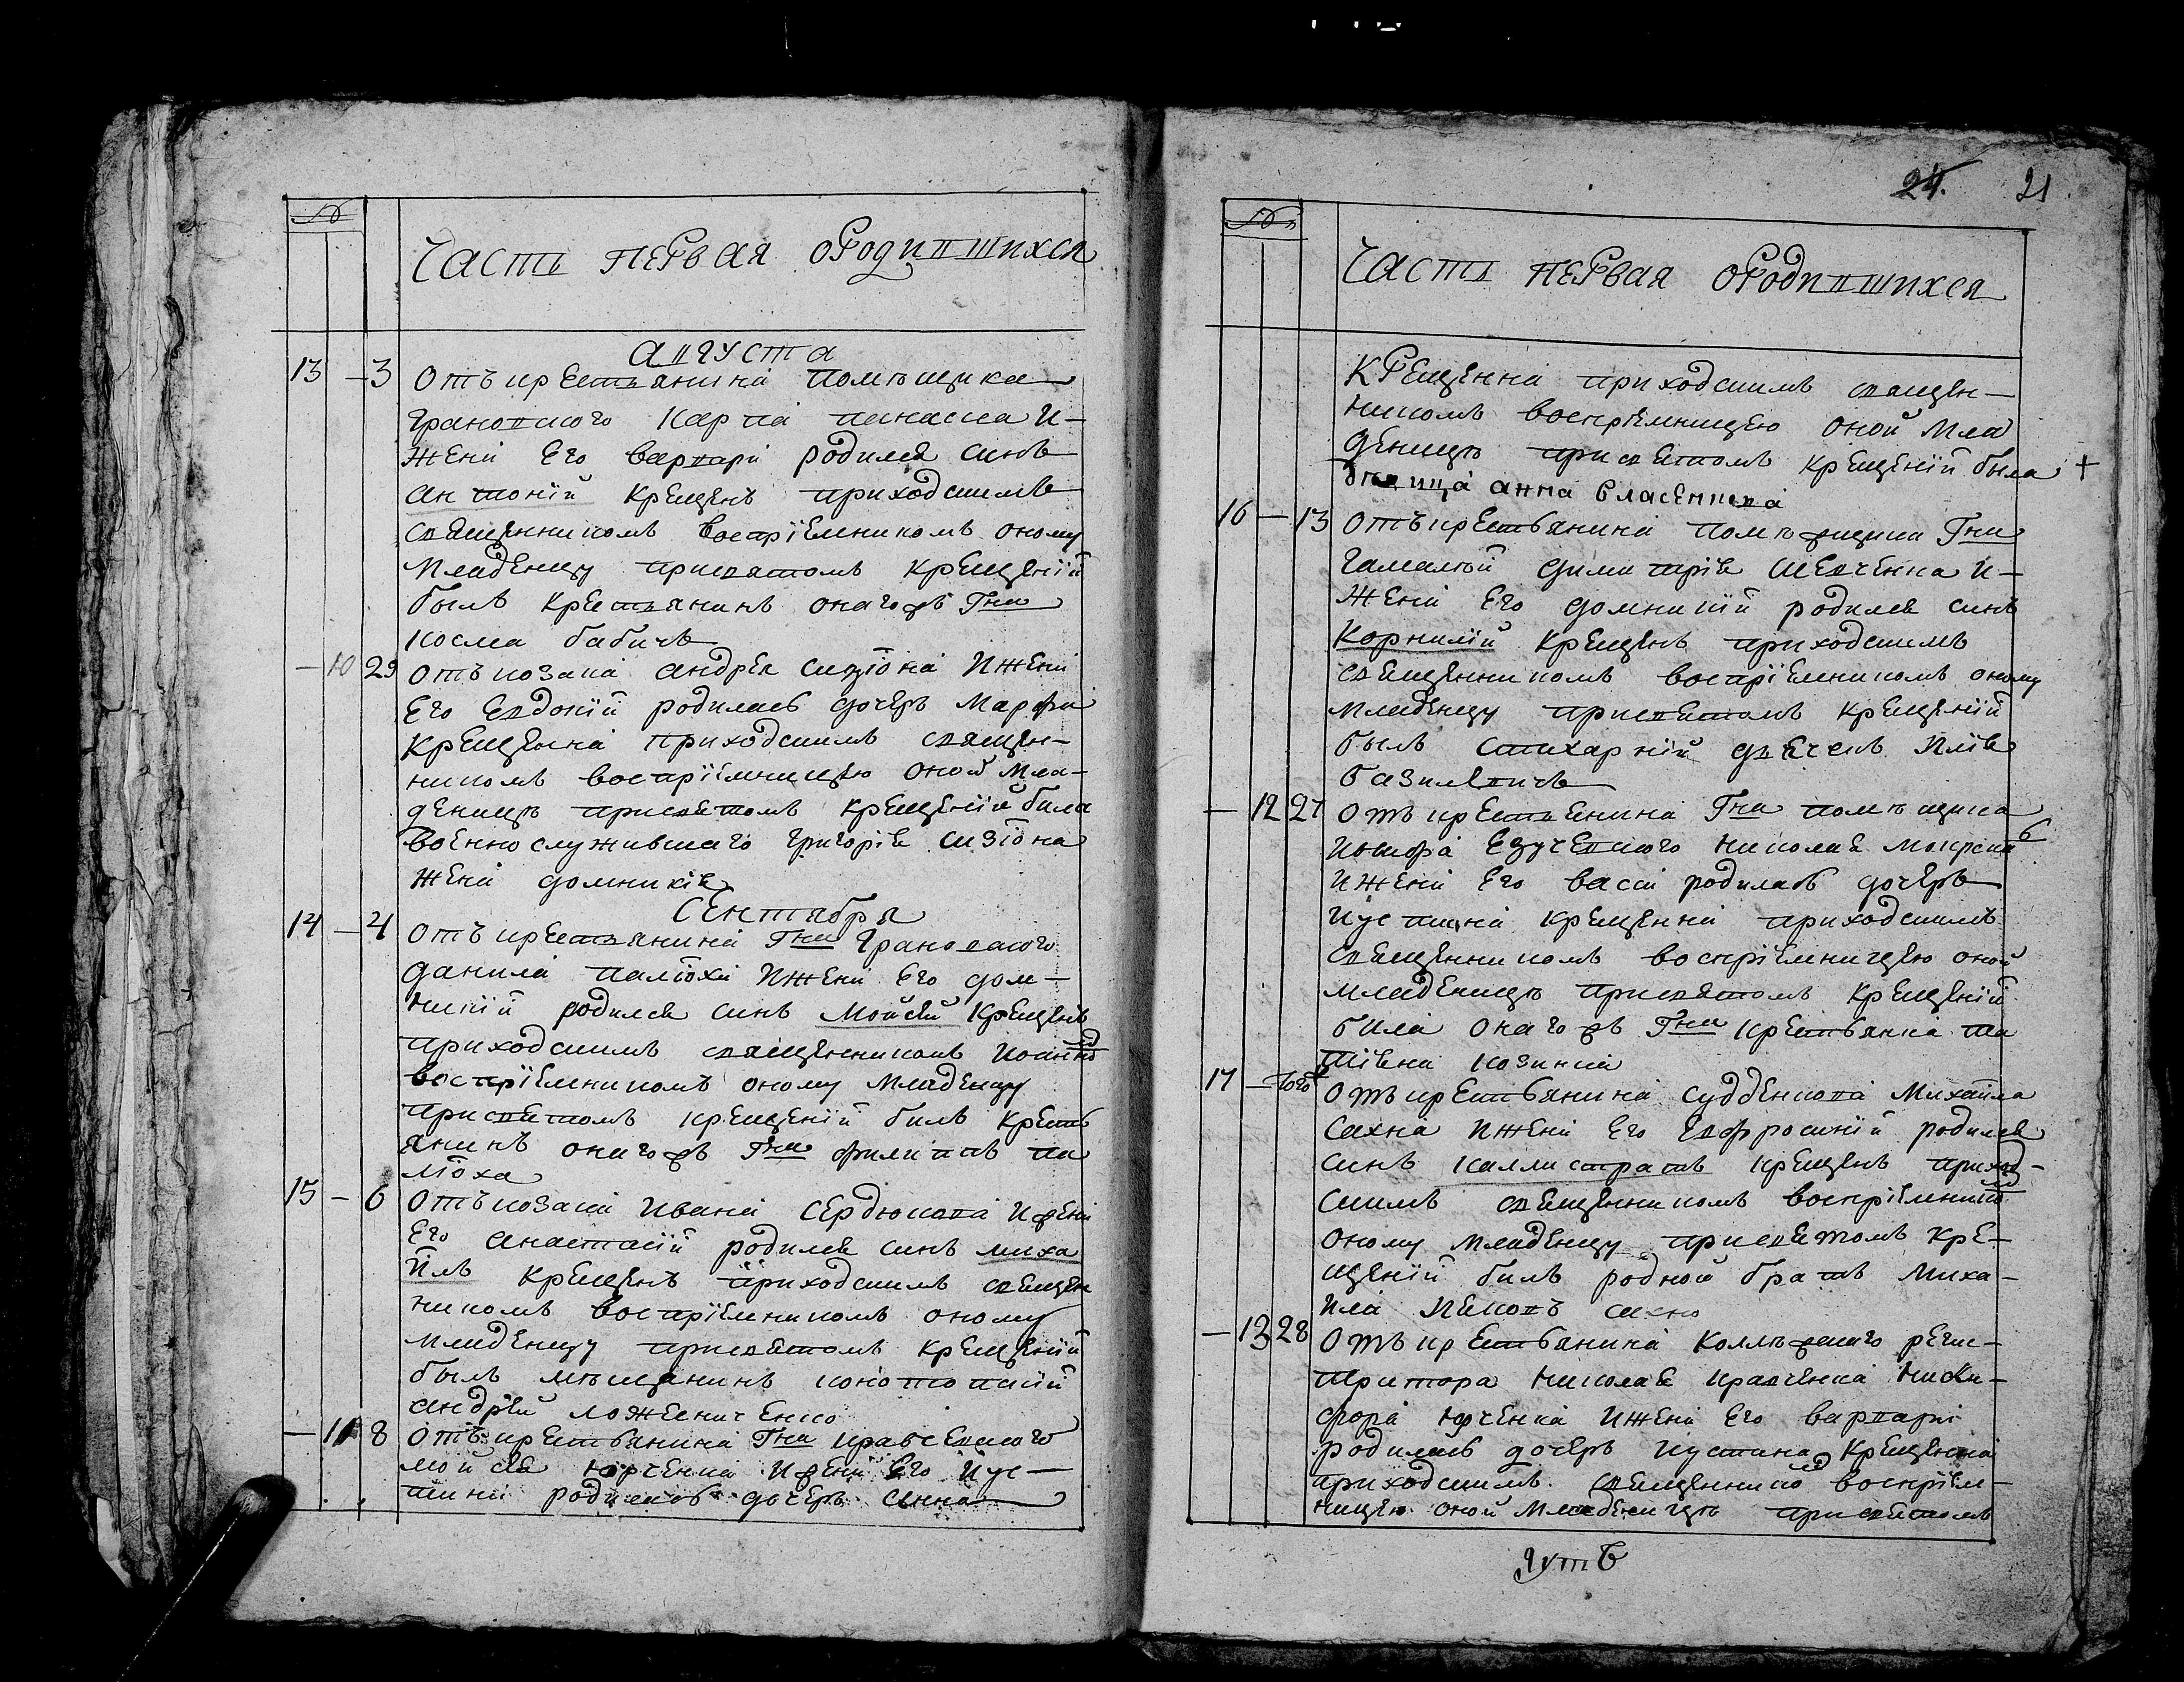 №
Часть первая ородившихся
Августа
13 — 3 Отъ крестьянина помѣщика
Грановского Карпа панасна и-
жени Его варвари родился синъ
антоній крещенъ приходскимъ
священникомъ воспріемникомъ оному
младенцу присвятомъ крещеній
былъ крестьянинъ оногожъ Гна
косма бабичъ
— 10 29 Отъ козака андрея сизіона ижени
Его Евдокій родилась дочерь Марфа
крещенна приходскимъ священ-
никомъ воспріемницею оной мла-
деницѣ присвятомъ крещеній била
военнослужившаго григорія сизіона
жена домникія
Сентября
14 — 4 Отъ крестьянина Гна Грановского
данила паліохи ижени Его дом-
никій родился синъ Мойсей крещенъ
приходскимъ священникомъ иоанно
воспріемникомъ оному младенцу
присвятомъ крещеній билъ кресть
янинъ оногожъ Гна филиппъ па
ліоха
15 — 6 Отъ козака ивана Сердюкова ижени
Его анастасій родился синъ миха
илъ крещенъ приходскимъ священ
никомъ воспріемникомъ оному
младенцу присвятомъ крещеній
былъ мѣщанинъ конотопскій
андрей
— 11 8 Отъ крестьянина Гна кравсевского
мойсея юрченка ижени его иус-
тини родилась дочерь анна
24. 21
№
Часть первая ородившихся
крещенна приходскимъ священ-
никомъ воспріемницею оной мла
деницѣ присвятомъ крещеній была +
дѣвица анна власенкова
16 — 13 Отъ крестьянина помѣжщика Гна
Гамалѣй димитрія шевченка и-
жени его домникій родился синъ
Корнилій крещенъ приходскимъ
священникомъ воспріемникомъ оному
младенцу присвятомъ крещеній
былъ стихарній дячекъ илія
базилевичъ
— 12 27 Отъ крестьянина Гна помѣщика
иосифа Езучевского николая мокрена
ижени его васси родилась дочерь
иустина крещенна приходскимъ
священникомъ воспріемницею оной
младеницѣ присвятомъ крещеній
била оногожъ Гна крестьянка та
тіяна
17 — того Отъ крестьянина судденкова Михаила
сахна ижени его Евфросиній родился
синъ каллистратъ крещенъ приход-
скимъ священникомъ воспріемнико
оному младенцу присвятомъ кре-
щеній билъ родной братъ миха-
ила яковъ сахно
— 13 28 Отъ крестьянина коллѣжского реги-
тратора николая кравченка ники-
фора юрченка ижени его варвари
родилась дочерь иустина крещенна
приходскимъ священнико воспріем-
ницею оной младеницѣ присвятомъ